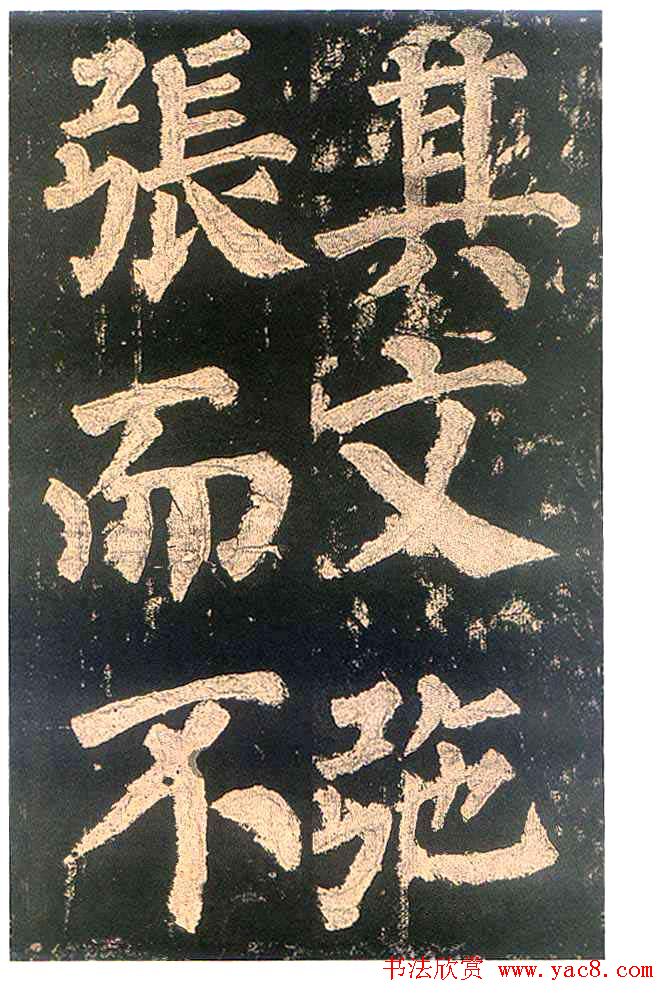 其文㢮
張而不
书法欣赏 www.yac8.com